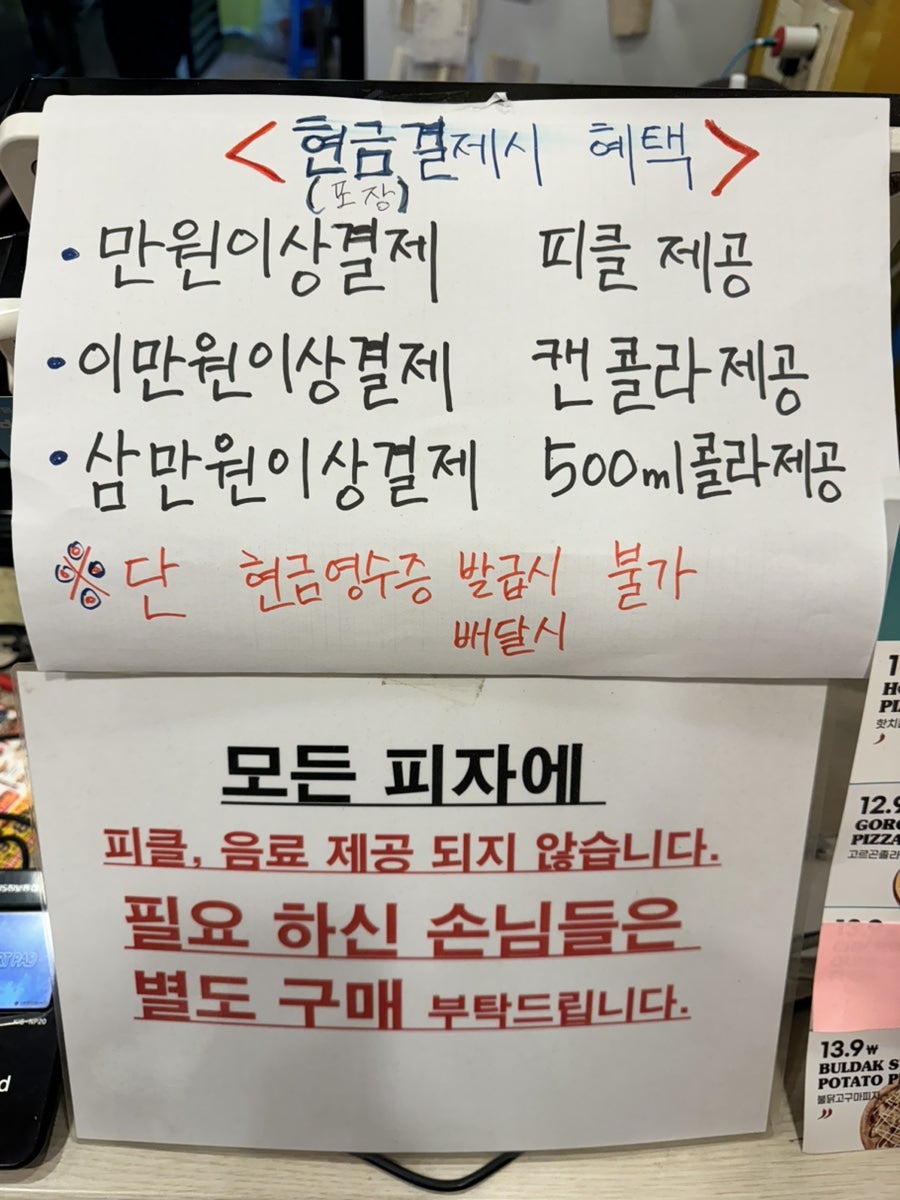 < 현금결제시 혜택 >
(포장)
• 만원이상결제 피클 제공
• 이만원이상결제 캔콜라제공
• 삼만원이상결제 500ml콜라제공
※ 단 현금영수증 발급시 불가
배달시
모든 피자에
피클, 음료 제공 되지 않습니다.
필요 하신 손님들은
별도 구매 부탁드립니다.
12.9
PIZZA
고르곤졸라
13.9₩
BULDAK
POTATO
불닭고구마피자